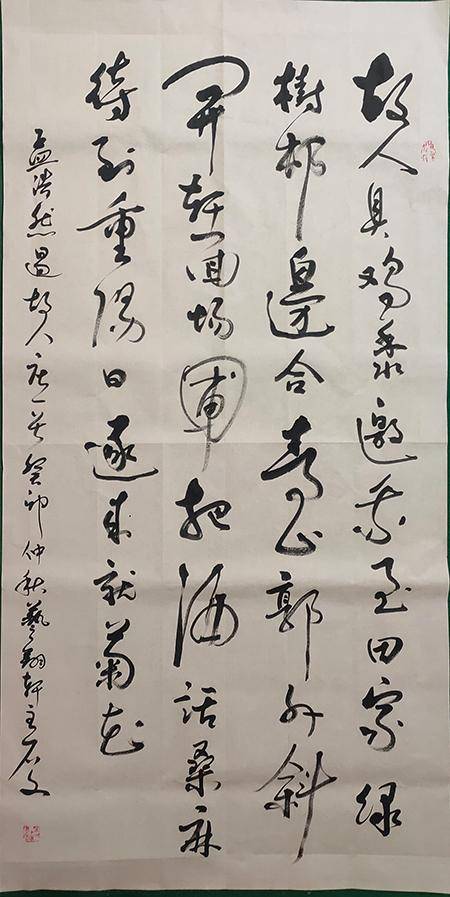 故人具鸡黍邀我至田家绿
樹邨邊合青山郭外斜
開轩面场圃把酒话桑麻
待到重陽日還来就菊花
孟浩然過故人庄一首癸卯仲秋藝翔轩主石文